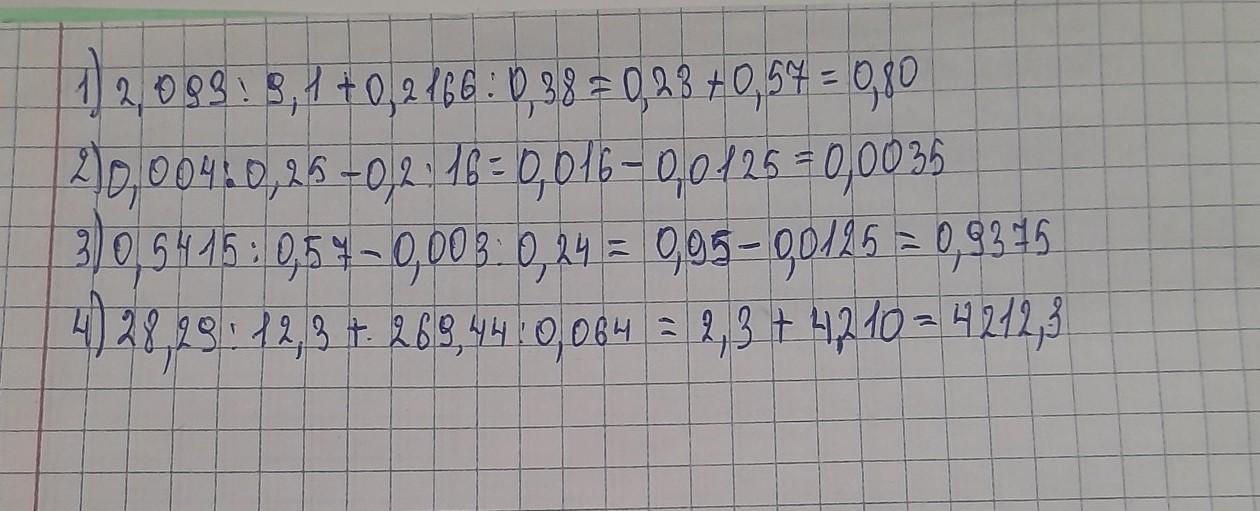 1) 2,093 : 9,1 + 0,2166 : 0,38 = 0,23 + 0,57 = 0,80
2) 0,004 : 0,25 - 0,2 : 16 = 0,016 - 0,0125 = 0,0035
3) 0,5415 : 0,57 - 0,003 : 0,24 = 0,95 - 0,0125 = 0,9375
4) 28,29 : 12,3 + 269,44 : 0,064 = 2,3 + 4,210 = 4212,3